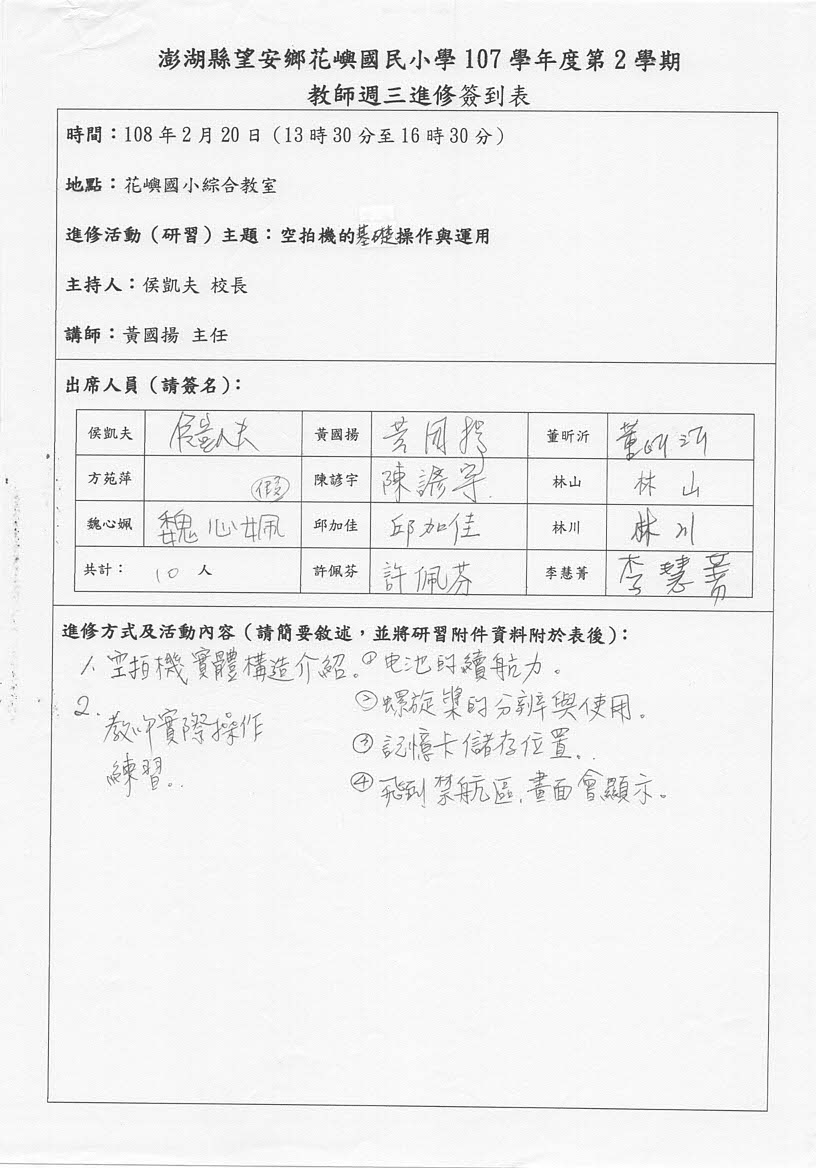 澎湖縣望安鄉花嶼國民小學 107 學年度第 2 學期
教師週三進修簽到表
時間：108 年 2 月 20 日（13 時 30 分至 16 時 30 分）
地點：花嶼國小綜合教室
進修活動（研習）主題：空拍機的基礎操作與運用
主持人：侯凱夫 校長
講師：黃國揚 主任
出席人員（請簽名）：
侯凱夫 侯凱夫 黃國揚 黃國揚 董昕沂 董昕沂
方苑萍 假 陳諺宇 陳諺宇 林山 林山
魏心姵 魏心姵 邱加佳 邱加佳 林川 林川
共計： 10 人 許佩芬 許佩芬 李慧菁 李慧菁
進修方式及活動內容（請簡要敘述，並將研習附件資料附於表後）：
1. 空拍機實體構造介紹。① 电池的續航力。
2. ② 螺旋槳的分辨與使用。
教師實際操作
③ 記憶卡儲存位置。
練習。
④ 飛到禁航區，畫面會顯示。